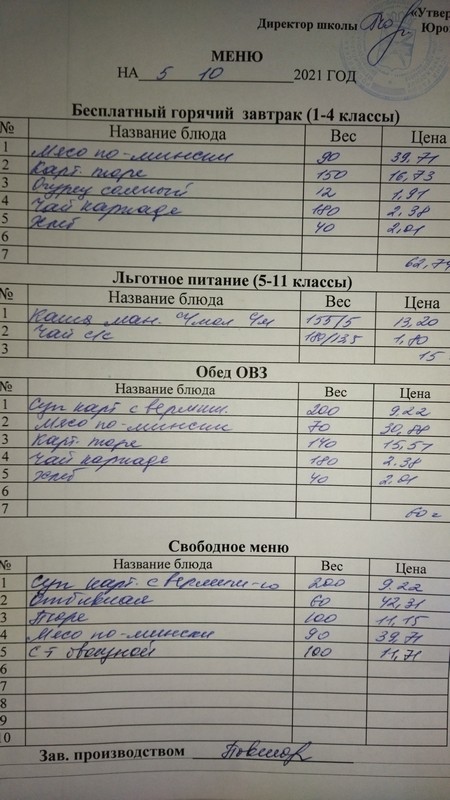 «Утвер
Директор школы Юро
МЕНЮ
НА 5 10 2021 ГОД
Бесплатный горячий завтрак (1-4 классы)
№ Название блюда Вес Цена
1 Мясо по-мински 90 39,71
2 Карт. пюре 150 16,73
3 Огурец соленый 12 1,91
4 Чай каркаде 180 2.38
5 Хлеб 40 2,01
6
7 62,74
Льготное питание (5-11 классы)
№ Название блюда Вес Цена
1 Каша ман. 155/5 13,20
2 Чай с/с 180/12,5 1,80
3 15
Обед ОВЗ
№ Название блюда Вес Цена
1 Суп карт с вермиш. 200 9.22
2 Мясо по-мински 70 30,88
3 Карт. пюре 140 15,57
4 Чай каркаде 180 2.38
5 Хлеб 40 2.01
6
7 60
Свободное меню
№ Название блюда Вес Цена
1 Суп карт. с вермиш-ю 200 9.22
2 Отбивная 60 42,31
3 Пюре 100 11,15
4 Мясо по-мински 90 39,71
5 100 11,71
6
7
8
9
10
Зав. производством